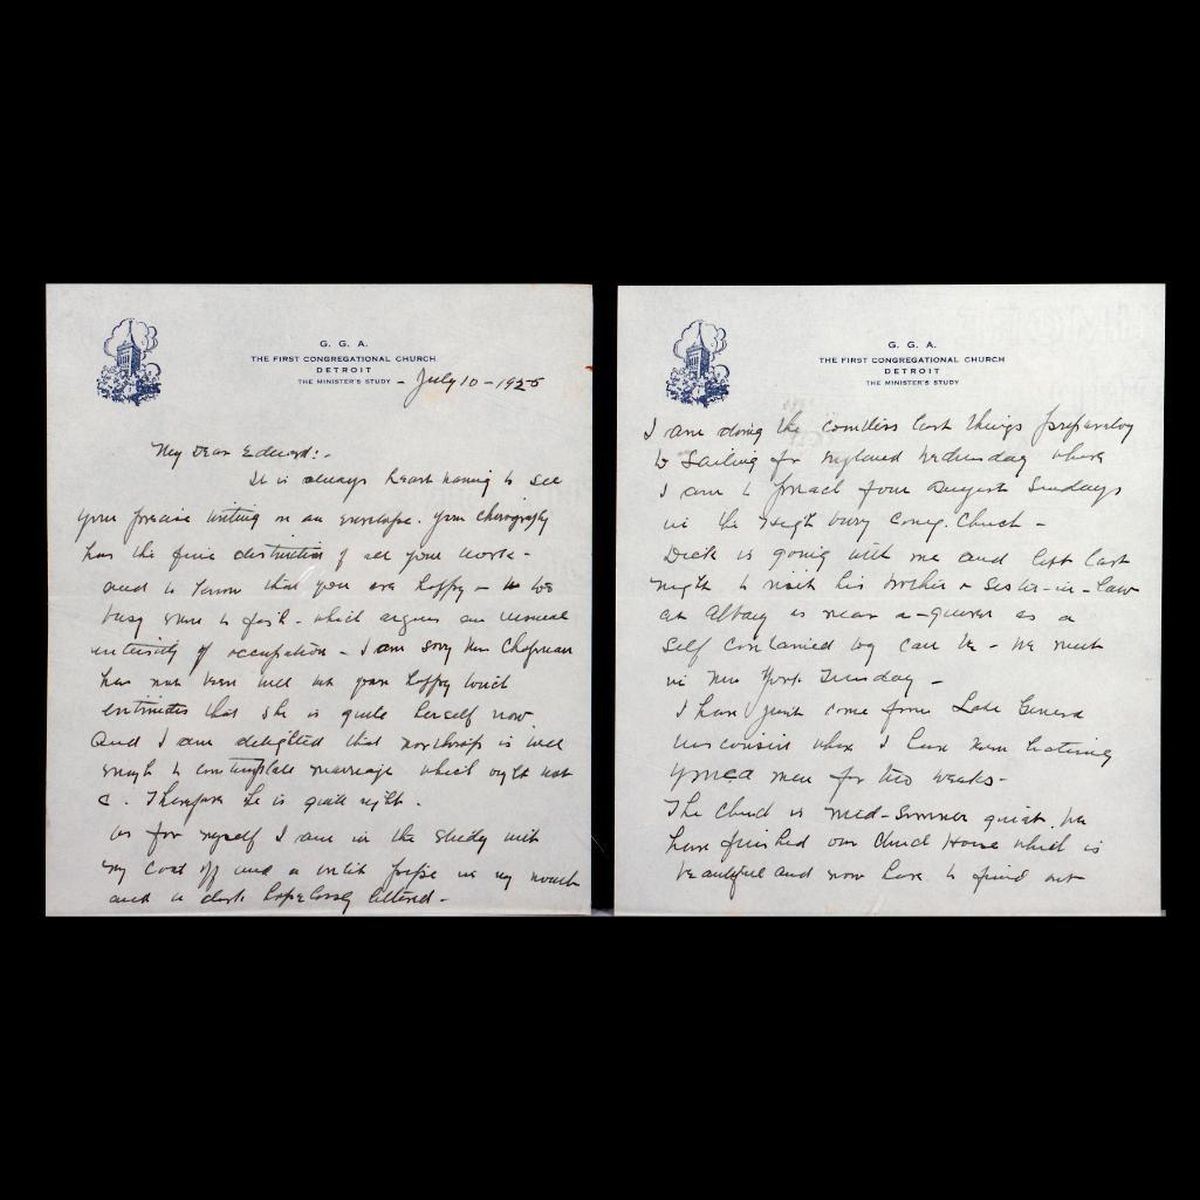 G. G. A.
THE FIRST CONGREGATIONAL CHURCH
DETROIT
THE MINISTER'S STUDY - July 10 - 1925
My Dear Edward:-
It is always heart warming to see
your precise writing on an envelope. Your chirography
has the fine distinction of all your work -
and to know that you are happy - too
busy even to fish - which argues an unusual
intensity of occupation - I am sorry Mrs Chapman
has not been well but your happy touch
intimates that she is quite herself now.
And I am delighted that Northrop is well
enough to contemplate marriage which ought not
Therefore he is quite right.
As for myself I am in the study with
my coat off and a unlit pipe in my mouth
and a desk hopelessly littered -
G. G. A.
THE FIRST CONGREGATIONAL CHURCH
DETROIT
THE MINISTER'S STUDY
I am doing the countless last things preparatory
to sailing for England Wednesday where
I am to preach four August Sundays
in the Highbury Cong. Church -
Dick is going with me and left last
night to visit his brother & sister-in-law
at Albany as near a-quiver as a
self contained boy can be - We meet
in New York Tuesday -
I have just come from Lake Geneva
Wisconsin where I have been lecturing
YMCA men for two weeks -
The Church is mid-summer quiet. We
have finished our Church House which is
beautiful and now have to find out